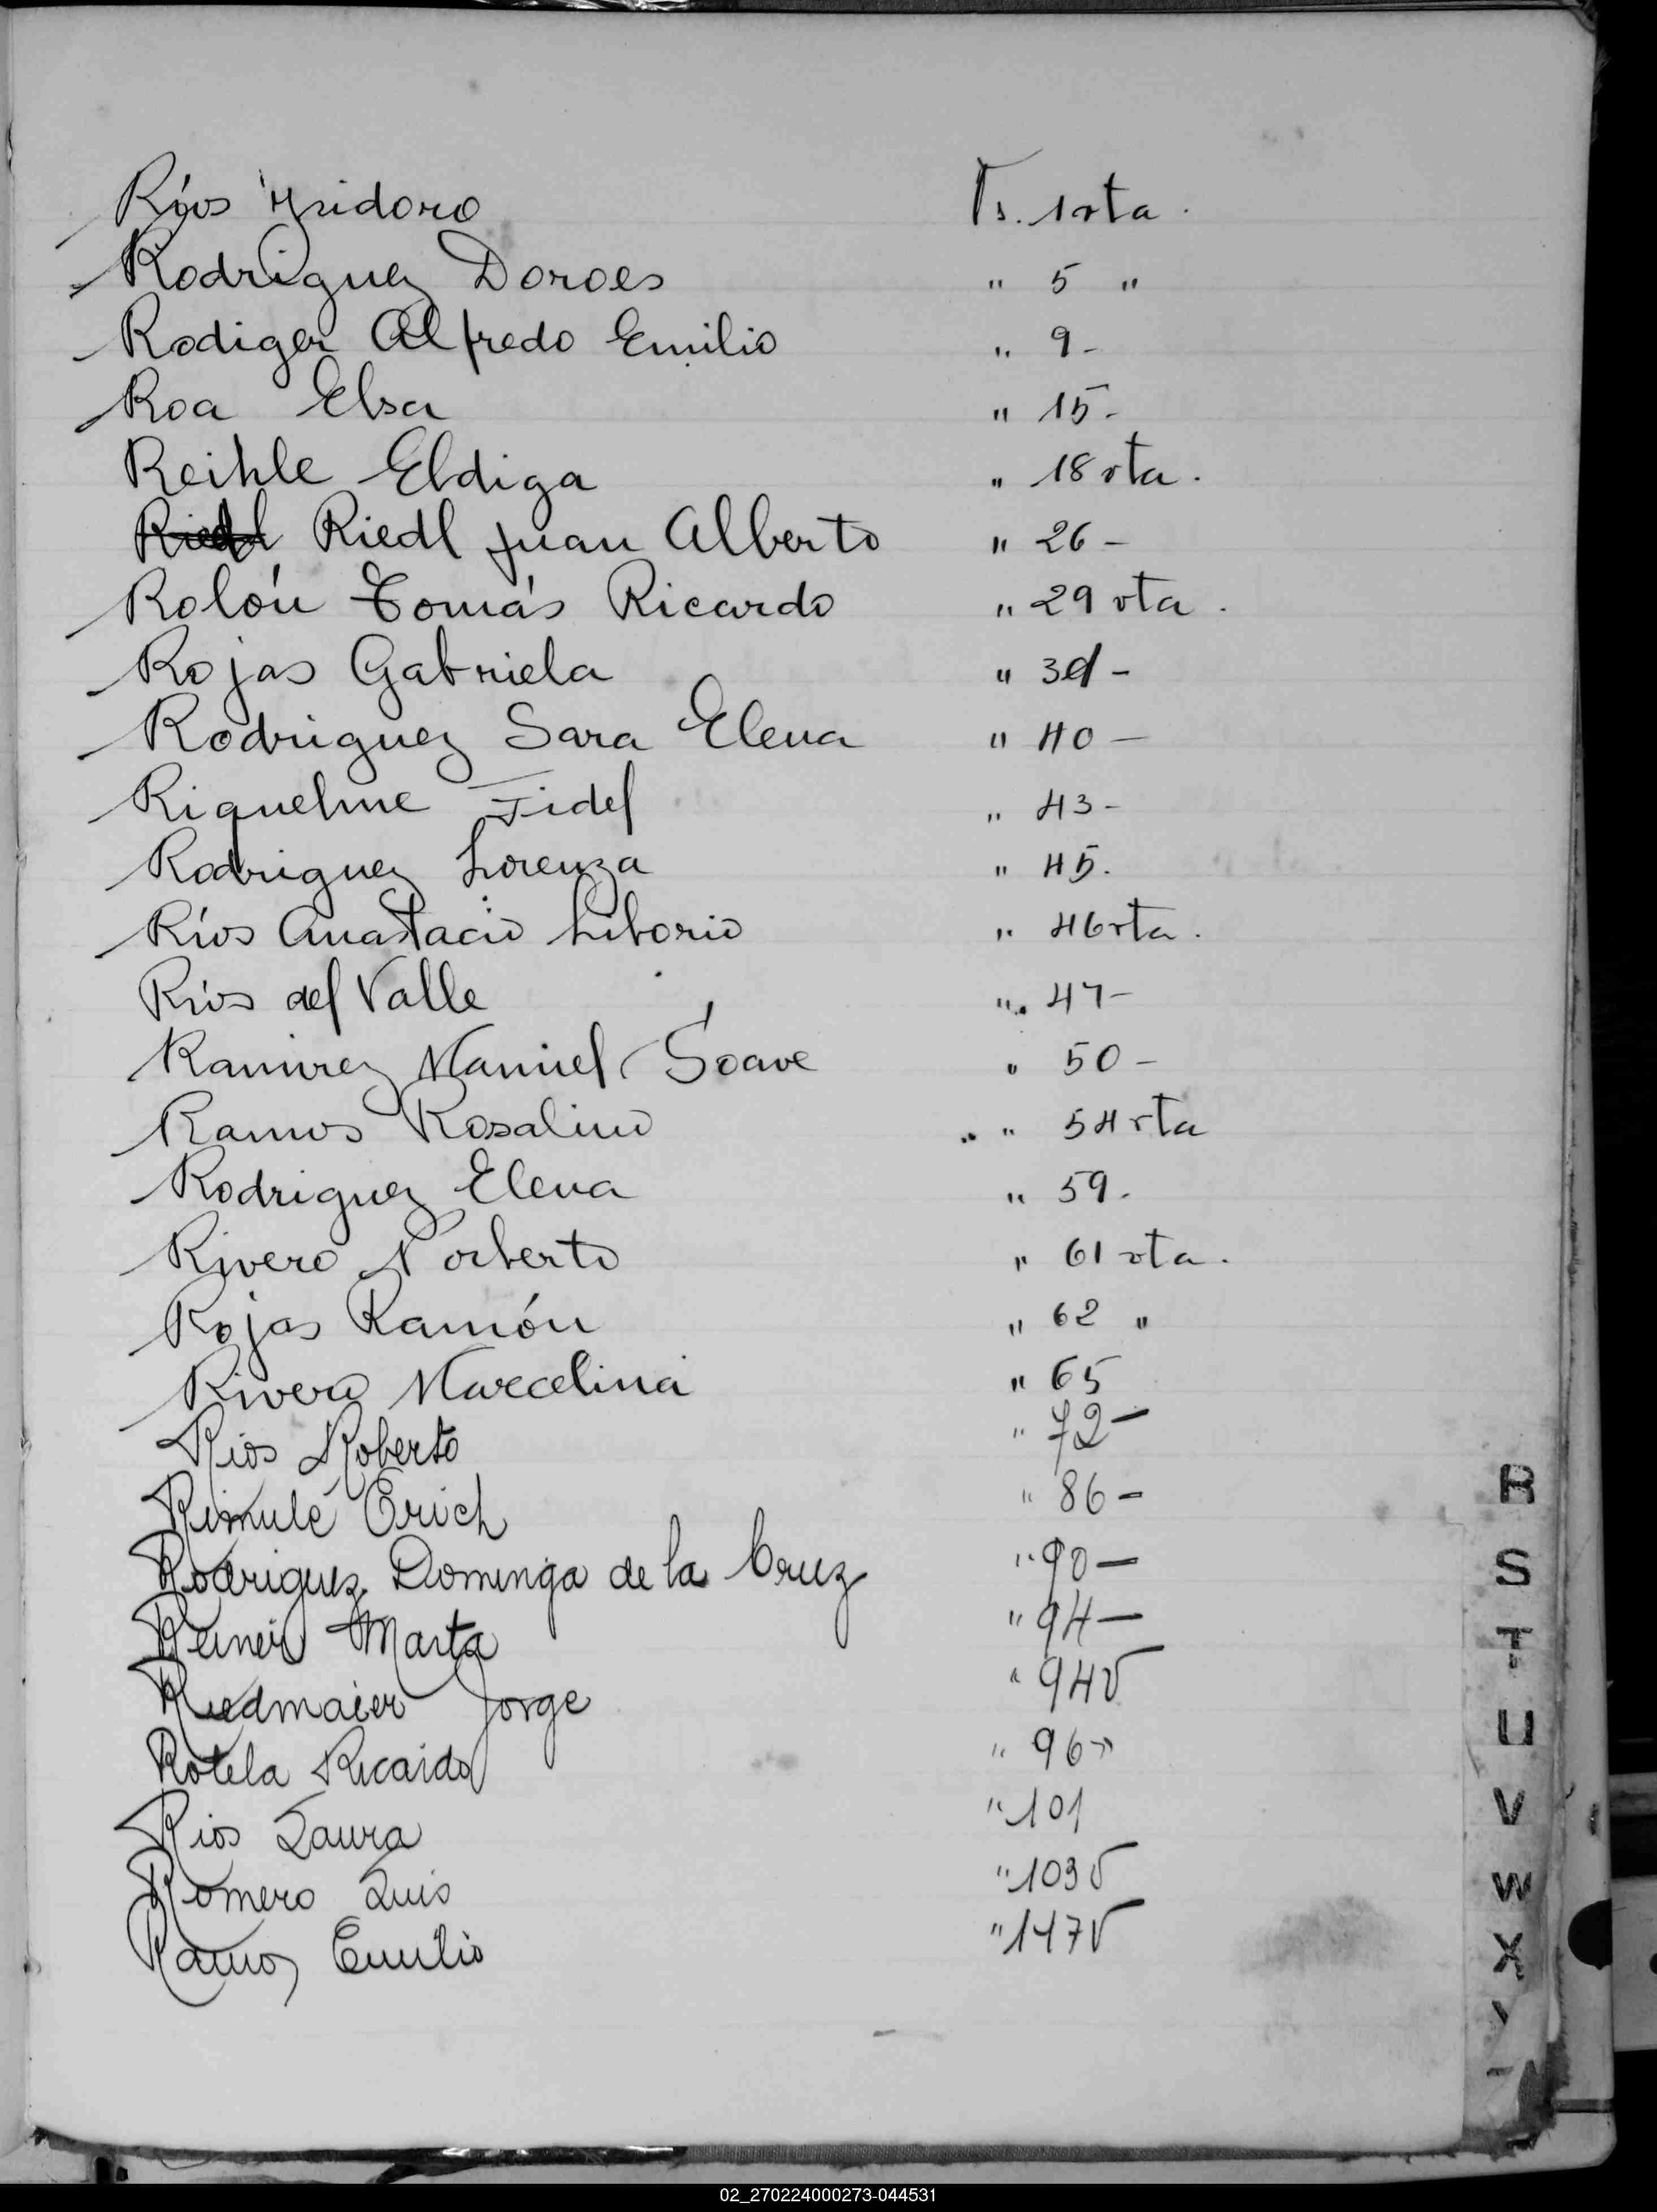 Ríos Ysidoro Fs. 1 vta.
Rodriguez Doroes " 5 "
Rodiger Alfredo Emilio " 9-
Roa Elsa " 15-
Reihle Eldiga " 18 vta.
Riedl Riedl Juan Alberto " 26-
Rolón Tomás Ricardo " 29 vta.
Rojas Gabriela "
Rodriguez Sara Elena " 40-
Riquelme Fidel " 43-
Rodriguez Lorenza " 45.
Ríos Anastacio Liborio " 46 vta.
Ríos del Valle " 47-
Ramirez Manuel Soave " 50-
Ramos Rosalino " 54 vta
Rodriguez Elena " 59.
Rivero Norberto " 61 vta.
Rojas Ramón " 62 "
Rivero Marcelina " 65
Rios Roberto " 72-
Erich " 86-
Rodriguez Dominga de la Cruz " 90-
Reiner Marta " 94-
Riedmaier Jorge " 94v
Rotela Ricardo " 96 "
Rios Laura " 101
Romero Luis " 103v
Ramos Emilio " 147v
R
S
T
U
V
W
X
Y
02_270224000273-044531